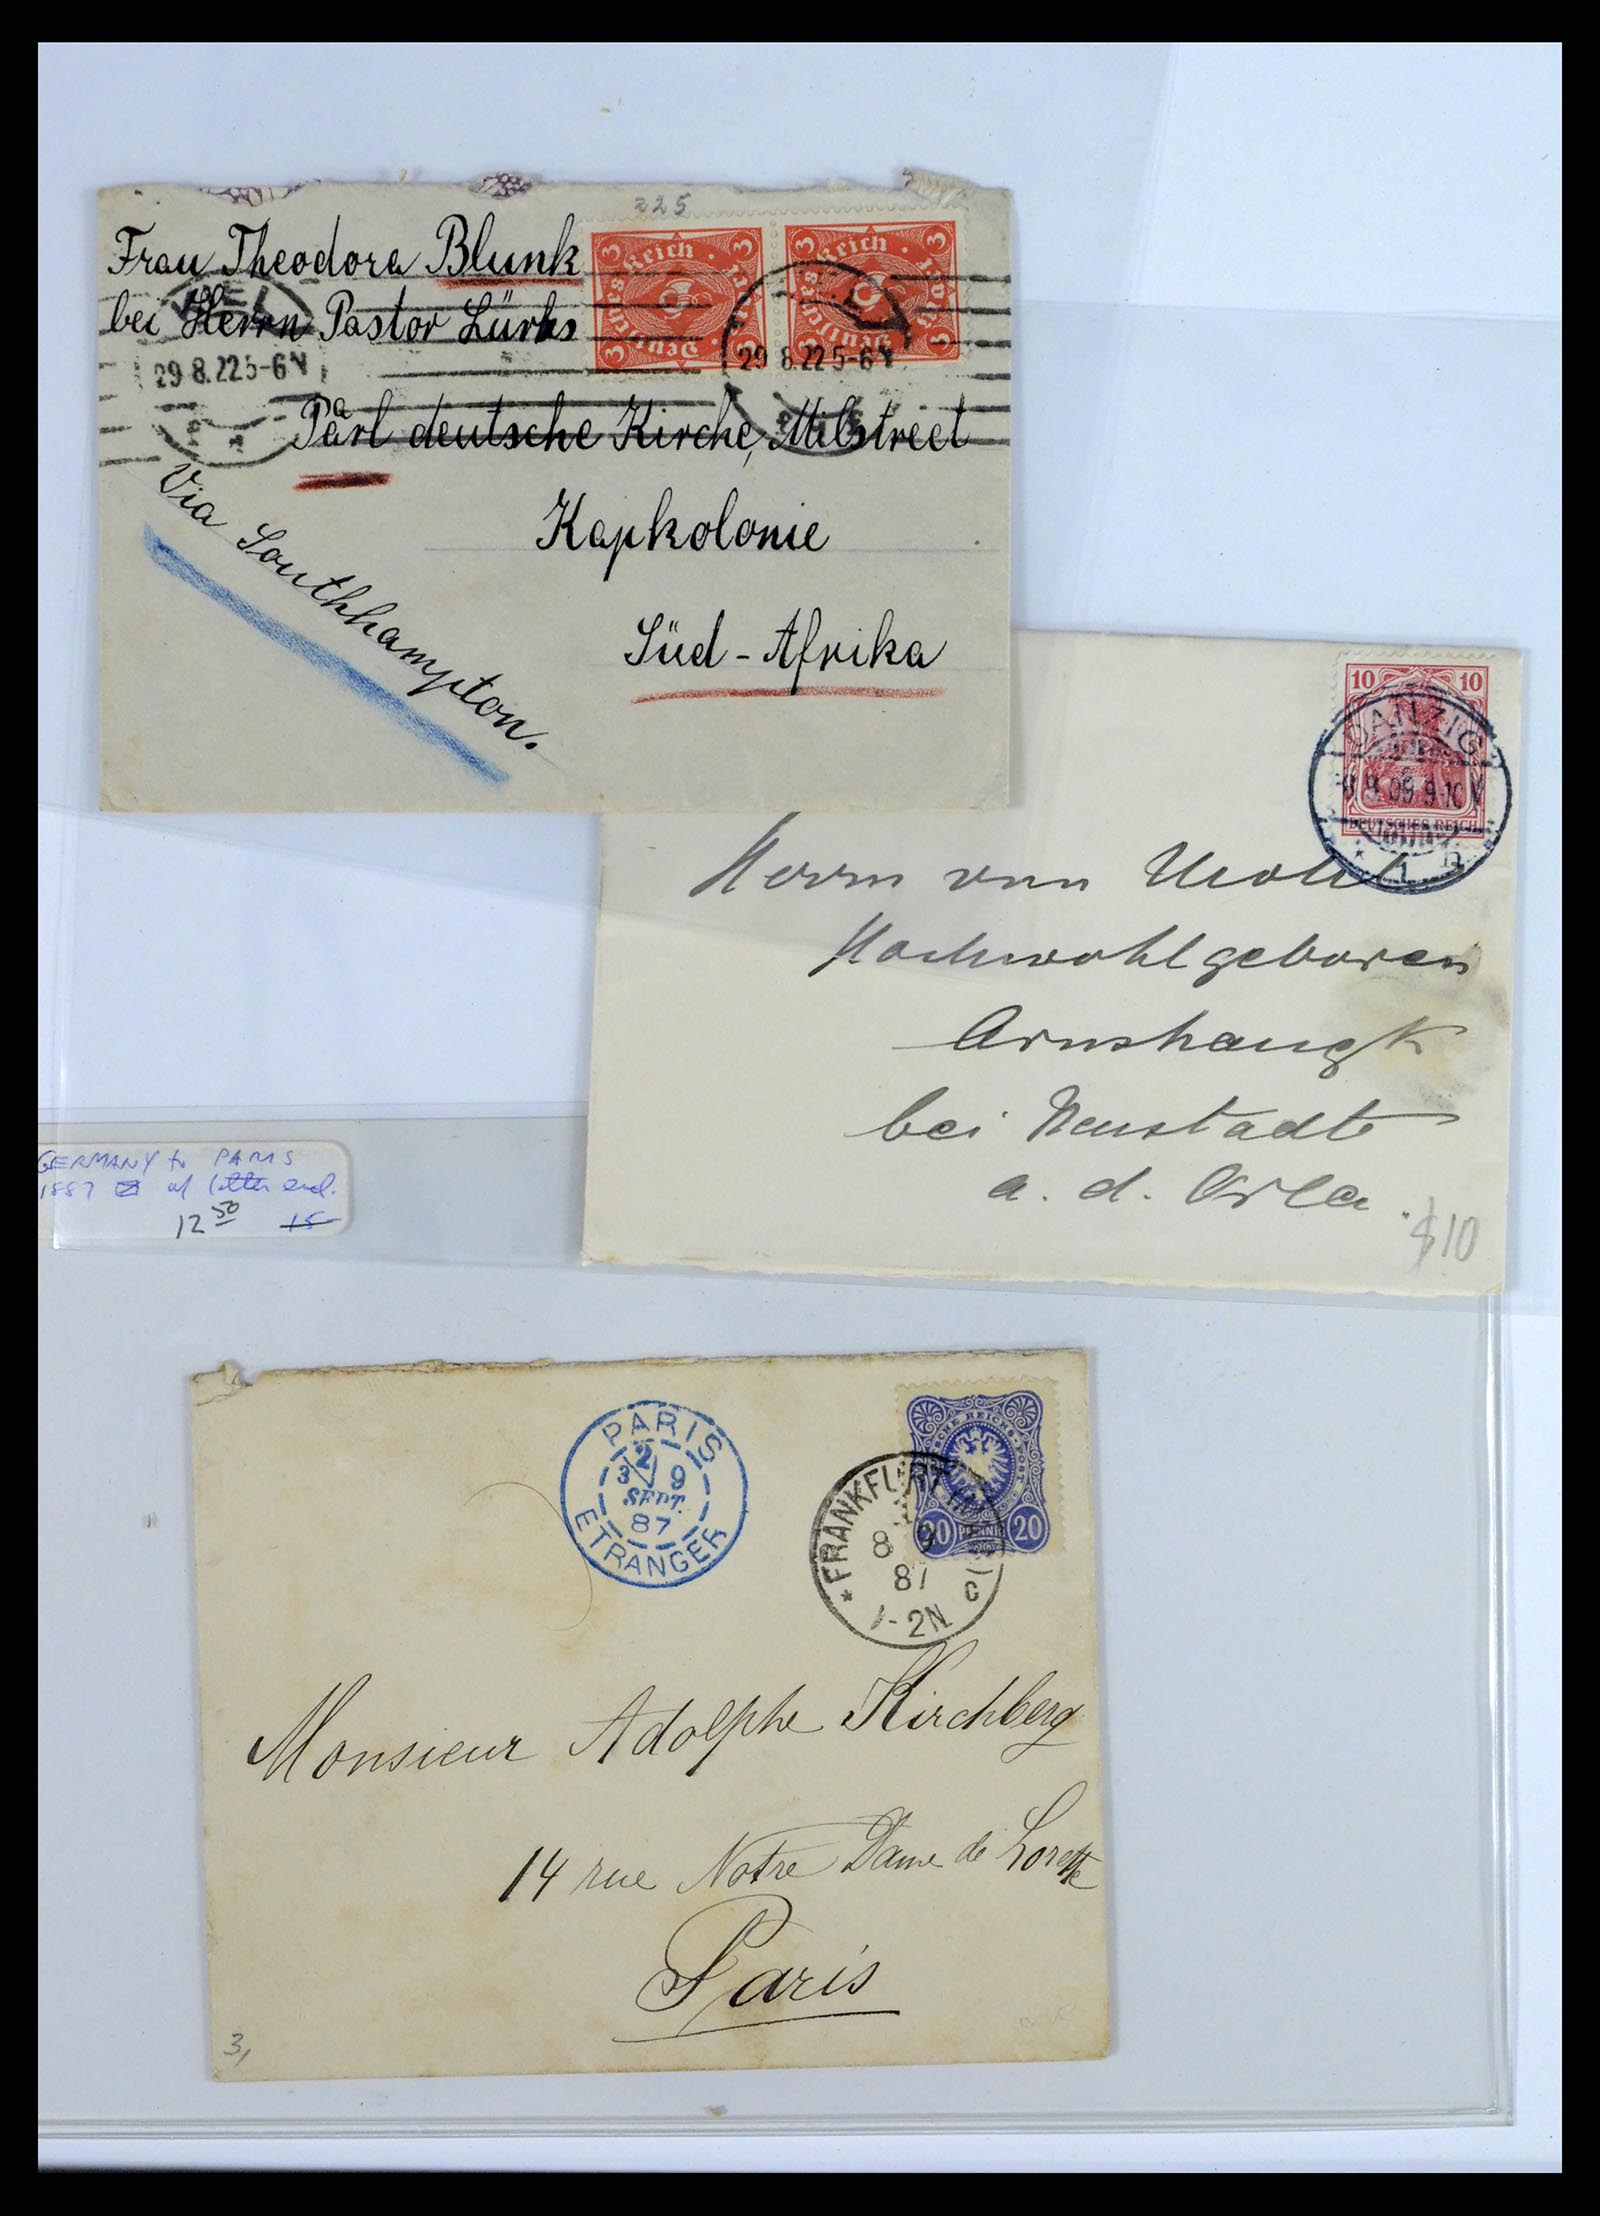 225
Frau Theodora Blunk
bei Herrn Pastor Lürks
Parl deutsche Kirche, Milstreet
Kapkolonie
Süd-Afrika
Via Southhampton.
29.8.22 5-6 N
29.8.22 5-6 N
3 3 3 3
Deutsches Reich
3 3 3 3
Deutsches Reich
10 10
DEUTSCHES REICH
DANZIG
09 9-10 V
* 1 n
Herrn von
Hochwohlgeboren
Arnshaugk
bei Neustadt
a. d. Orla.
$10
GERMANY to PARIS
1887 w/ letter encl.
12 50 15
PARIS
2
3 9
SEPT.
87
ETRANGER
20 PFENNIG 20
* FRANKFURT
8 9
87
1-2N
C
Monsieur Adolphe Kirchberg
14 rue Notre Dame de Lorette
Paris
3,